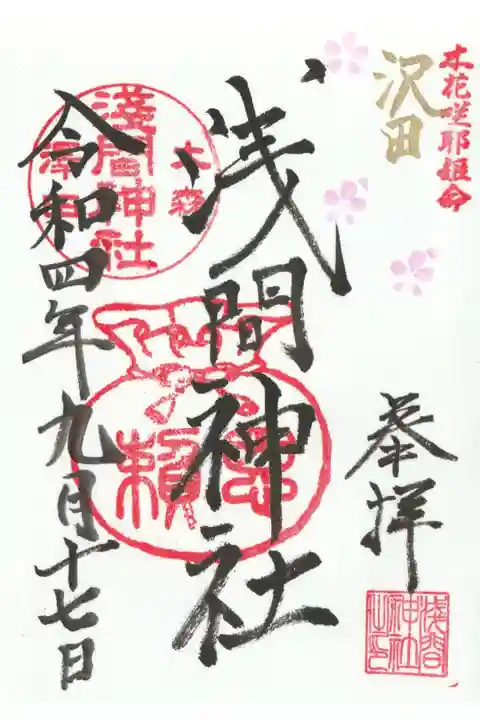 木花咲耶姫命
沢田
奉拝
浅間神社
令和四年九月十七日
淺間神社
浅間
神社
之印